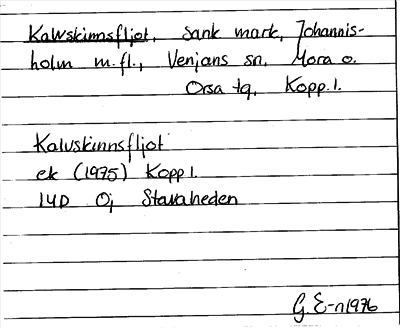 Kalvskinnsfljot, sank mark, Johannis-
holm m.fl., Venjans sn, Mora o.
Orsa tg, Kopp.l.
Kalvskinnsfljot
ek (1975) Kopp l.
14D Öj Stavaheden
G. E-n 1976